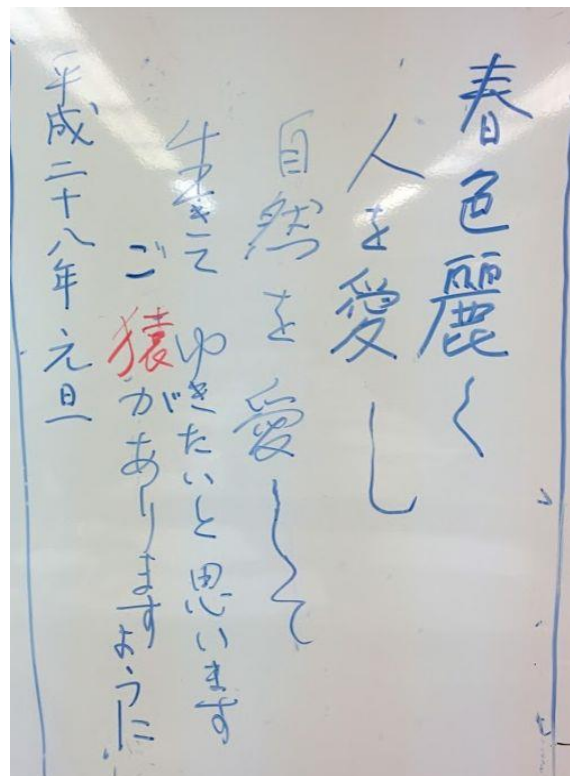 春色麗く
人を愛し
自然を愛して
生きてゆきたいと思います
ご猿がありますように
平成二十八年元旦